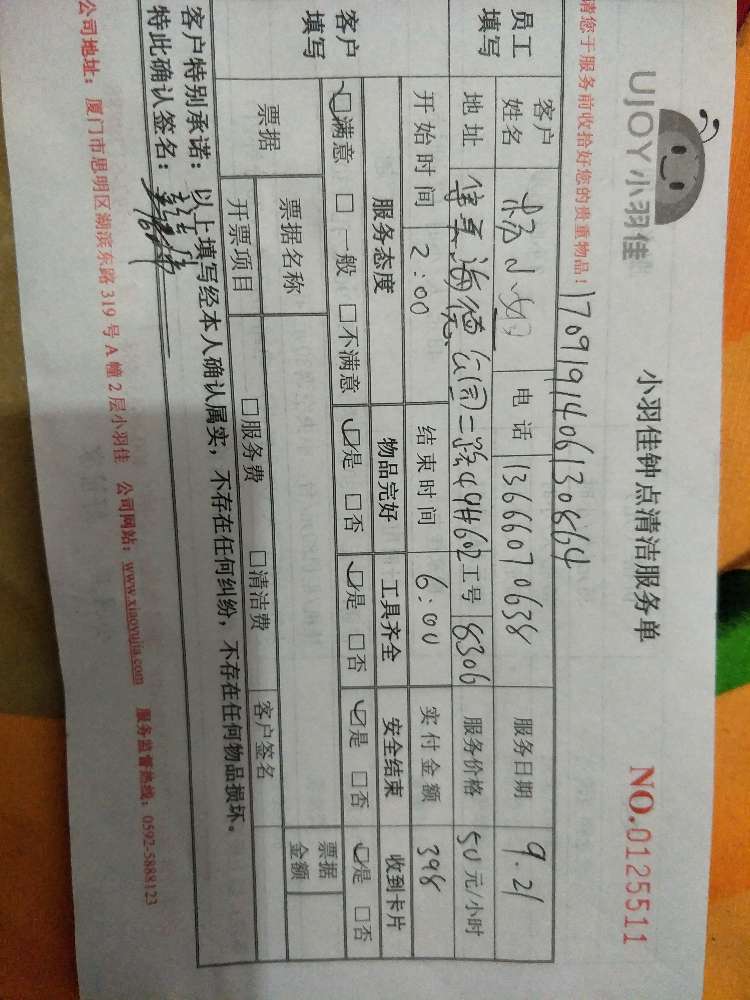 UJOY小羽佳
小羽佳钟点清洁服务单
NO.0125511
请您于服务前收拾好您的贵重物品！
1709191406130864
员工填写
客户姓名
小姐
电话 13666070638
服务日期 9.21
地址
海德公园二路44#602
工号 8306
服务价格 50元/小时
开始时间 2:00
结束时间 6:00
实付金额 398
客户填写
服务态度 物品完好 工具齐全 安全结束 收到卡片
☑满意 □一般 □不满意 ☑是 □否 ☑是 □否 ☑是 □否 ☑是 □否
票据 票据名称 票据金额
开票项目 □服务费 □清洁费 客户签名
客户特别承诺：以上填写经本人确认属实，不存在任何纠纷，不存在任何物品损坏。
特此确认签名：
公司地址：厦门市思明区湖滨东路319号A幢2层小羽佳 公司网站：www.xiaoyujia.com 服务监督热线：0592-5888123